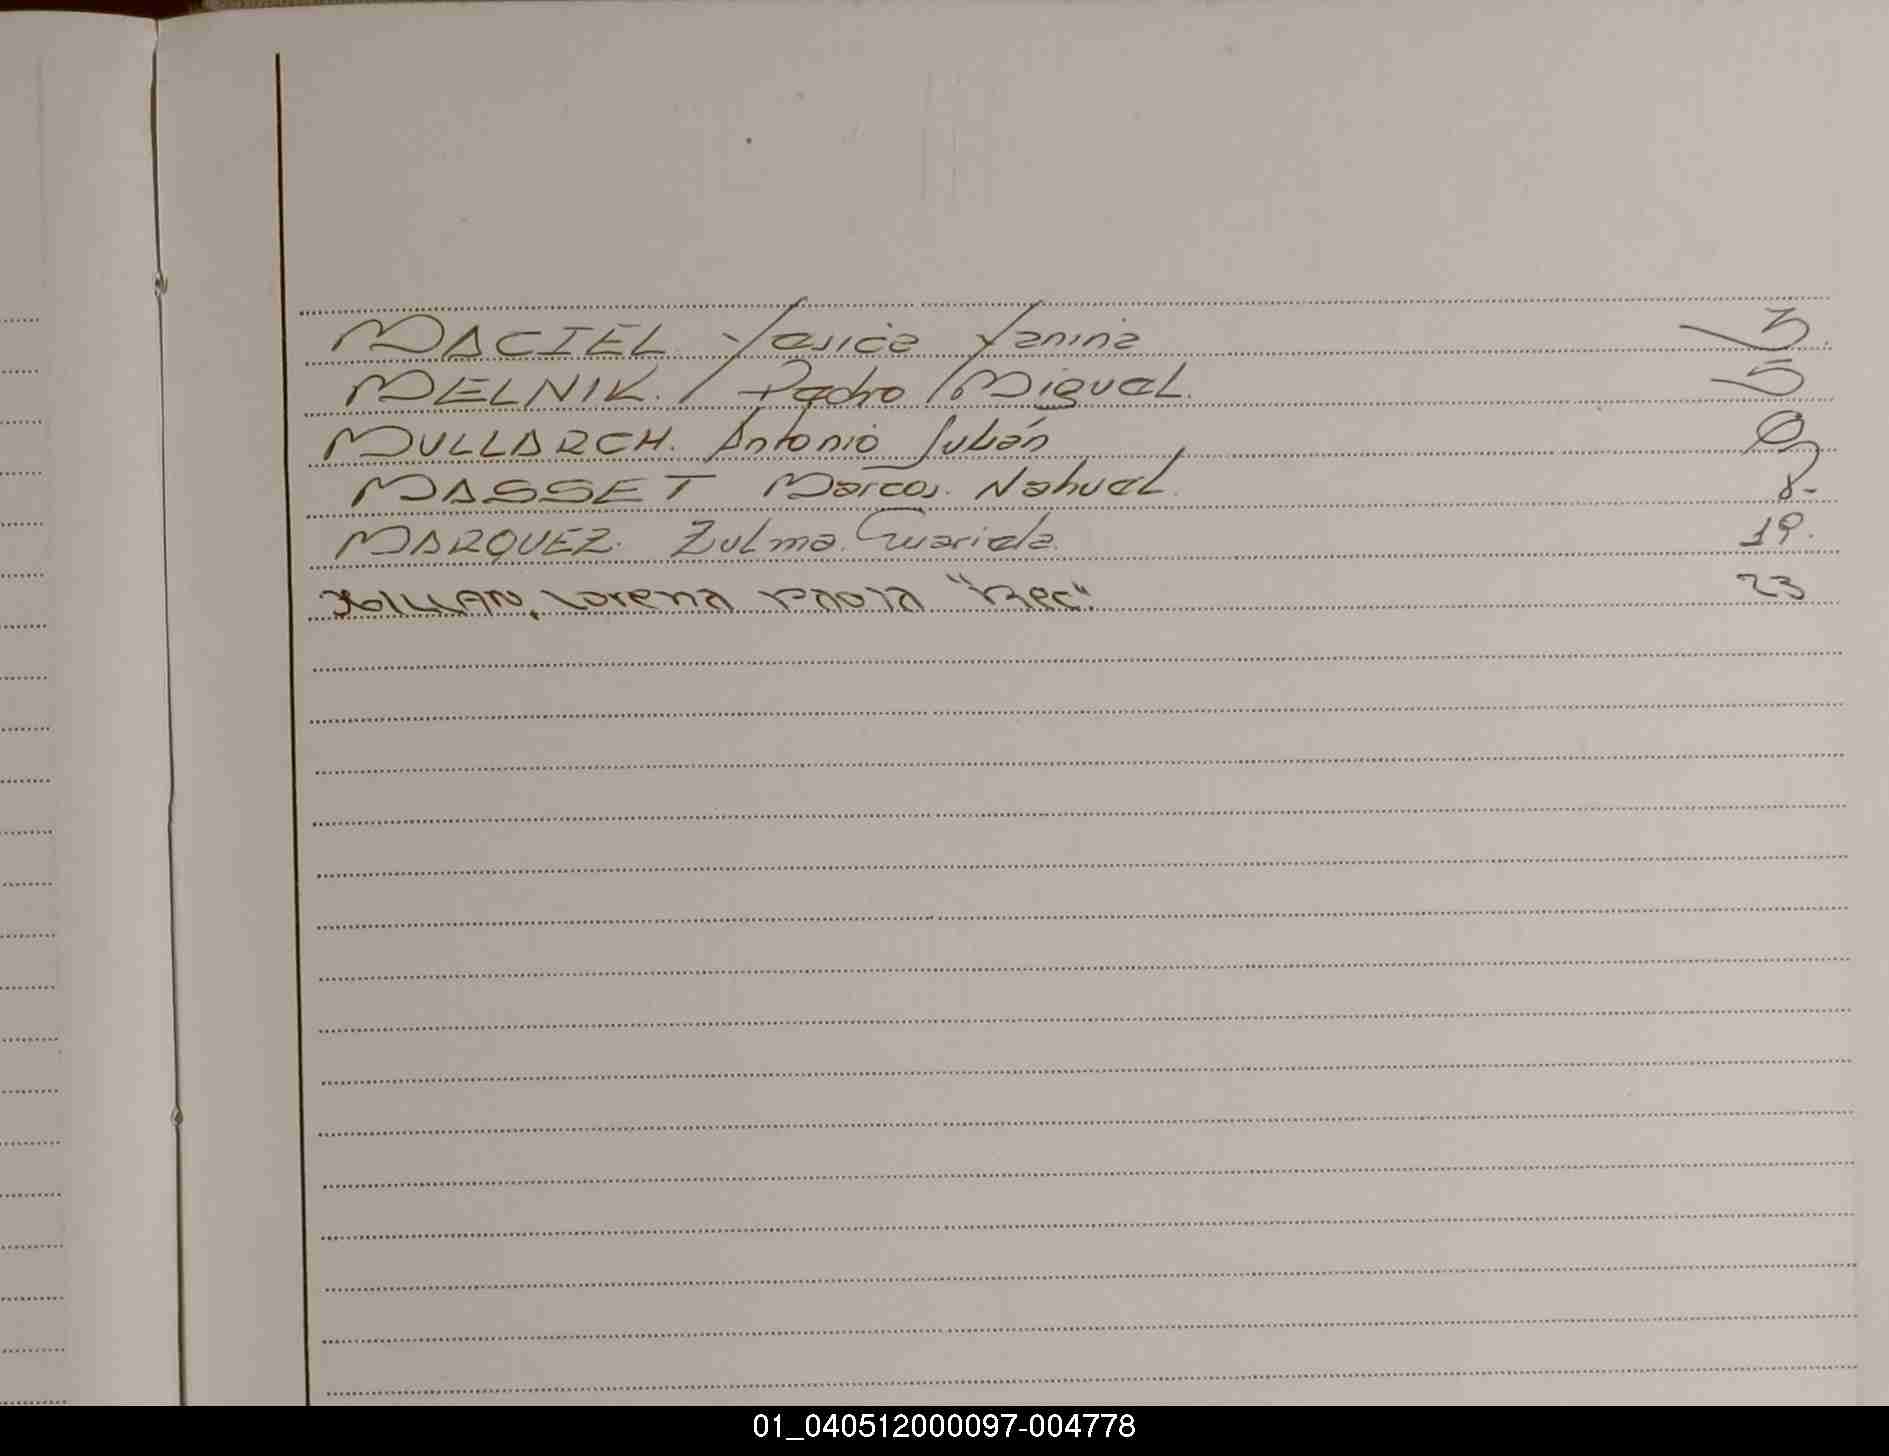 MACIEL Yesica Yanina 3.
MELNIK. Pedro Miguel. 5
MULLARCH. Antonio Julián
MASSET Marcos. Nahuel. 8-
MARQUEZ. Zulma. 19.
MILLAN, Lorena Paola "Rec". 23
01_040512000097-004778